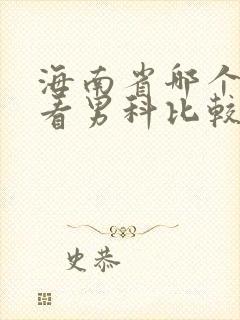 海南省哪个
看男科比较
史恭